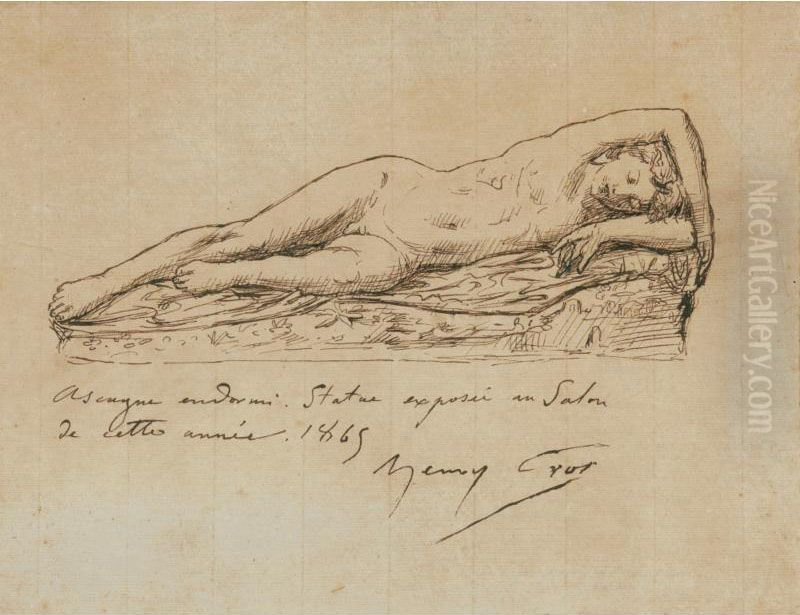 Ascagne endormi. Statue exposée au Salon
de cette année. 1865
Henry Cros
NiceArtGallery.com